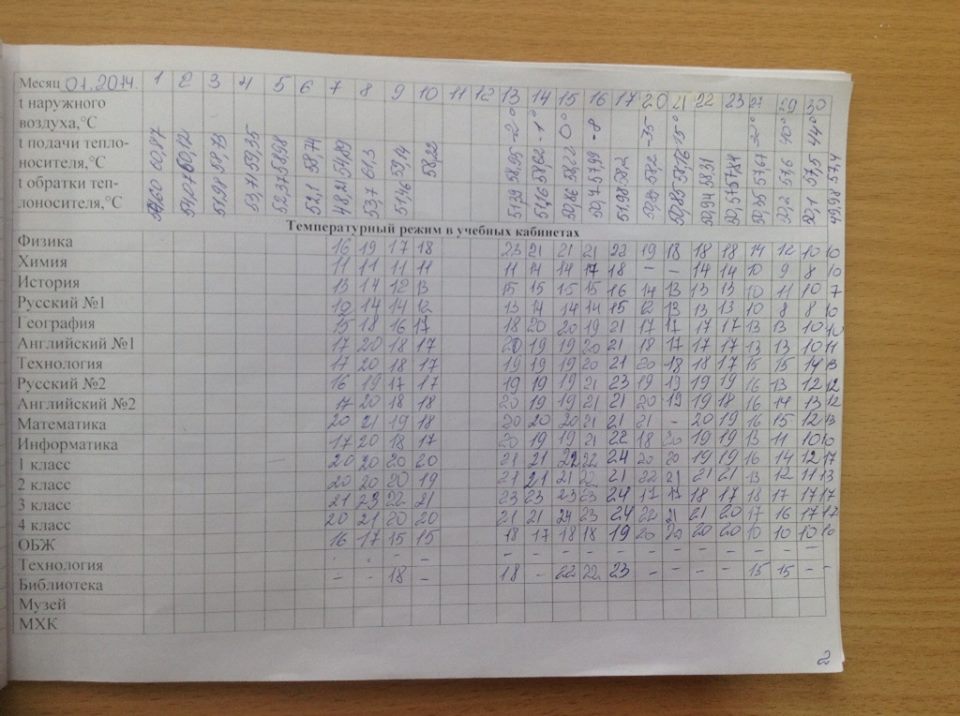 Месяц 01.2014. 1 2 3 4 5 6 7 8 9 10 11 12 13 14 15 16 17 20 21 22 23 27 29 30
t наружного воздуха,°С -2° -1° 0° -8 -35
t подачи теплоносителя,°С 60,87 60,12 58,73 59,35 58,98 58,74 54,89 61,3 59,14 58,23 58,95 58,62 58,22 57,99 58,2 58,22 58,16 58,31 57,84 57,67 57,6 57,5 57,4
t обратки теплоносителя,°С 54,07 51,91 53,71 52,37 52,1 48,21 53,7 51,46 51,39 51,16 50,86 50,7 51,98 50,89 50,85 50,94 50,5 50,35 50,2 50,1 49,98
Температурный режим в учебных кабинетах
Физика 16 19 17 18 23 21 21 21 22 19 18 18 18 14 12 10 10
Химия 11 11 11 11 11 14 14 17 18 – – 14 14 10 9 8 10
История 13 14 12 13 15 15 15 15 16 14 13 13 13 10 11 10 7
Русский №1 14 14 12 13 14 14 14 15 12 13 13 13 10 8 8 10
География 15 18 16 17 18 20 20 19 21 17 17 17 17 13 13 10
Английский №1 17 20 18 17 20 19 19 20 21 18 17 17 17 13 13 10 11
Технология 17 20 18 17 19 19 19 20 21 20 18 18 17 15 15 14 13
Русский №2 16 19 17 17 19 19 19 21 23 19 19 19 16 13 12 12
Английский №2 17 20 18 18 20 19 19 21 21 20 19 19 18 16 14 13 12
Математика 20 21 19 18 20 20 20 21 21 21 - 20 19 16 15 12 13
Информатика 17 20 18 17 20 19 19 21 22 18 20 19 19 13 11 10 10
1 класс 20 20 20 20 21 21 22 22 24 20 20 19 19 16 14 12 17
2 класс 20 20 20 19 21 21 21 22 21 22 21 21 21 13 12 11 13
3 класс 21 23 22 21 23 23 23 23 24 17 17 18 17 18 17 17 17
4 класс 20 21 20 20 21 21 24 23 24 22 21 21 20 17 16 17 17
ОБЖ 16 17 15 15 18 17 18 18 19 20 20 20 20 10 10 10 10
Технология - - - - - - - - - - - - - - - -
Библиотека - - 18 - 18 - 22 22 23 - - - - 15 15 - -
Музей
МХК
2